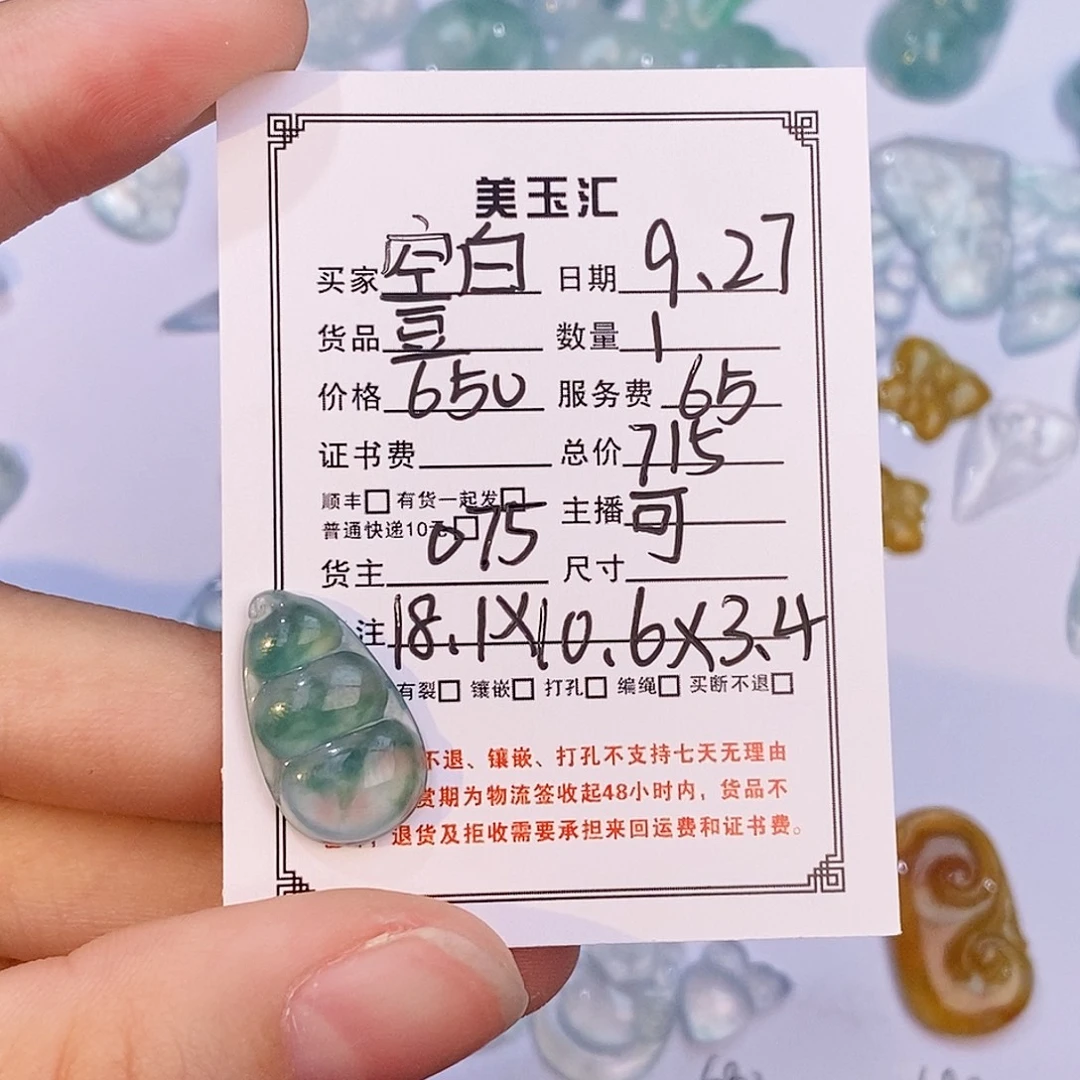 美玉汇
买家 空白 日期 9.27
货品 豆 数量 1
价格 650 服务费 65
证书费 总价 715
顺丰□ 有货一起发□ 主播 可
普通快递10元□
货主 075 尺寸
注 18.1X10.6X3.4
有裂□ 镶嵌□ 打孔□ 编绳□ 买断不退□
不退、镶嵌、打孔不支持七天无理由
赏期为物流签收起48小时内，货品不
退货及拒收需要承担来回运费和证书费。